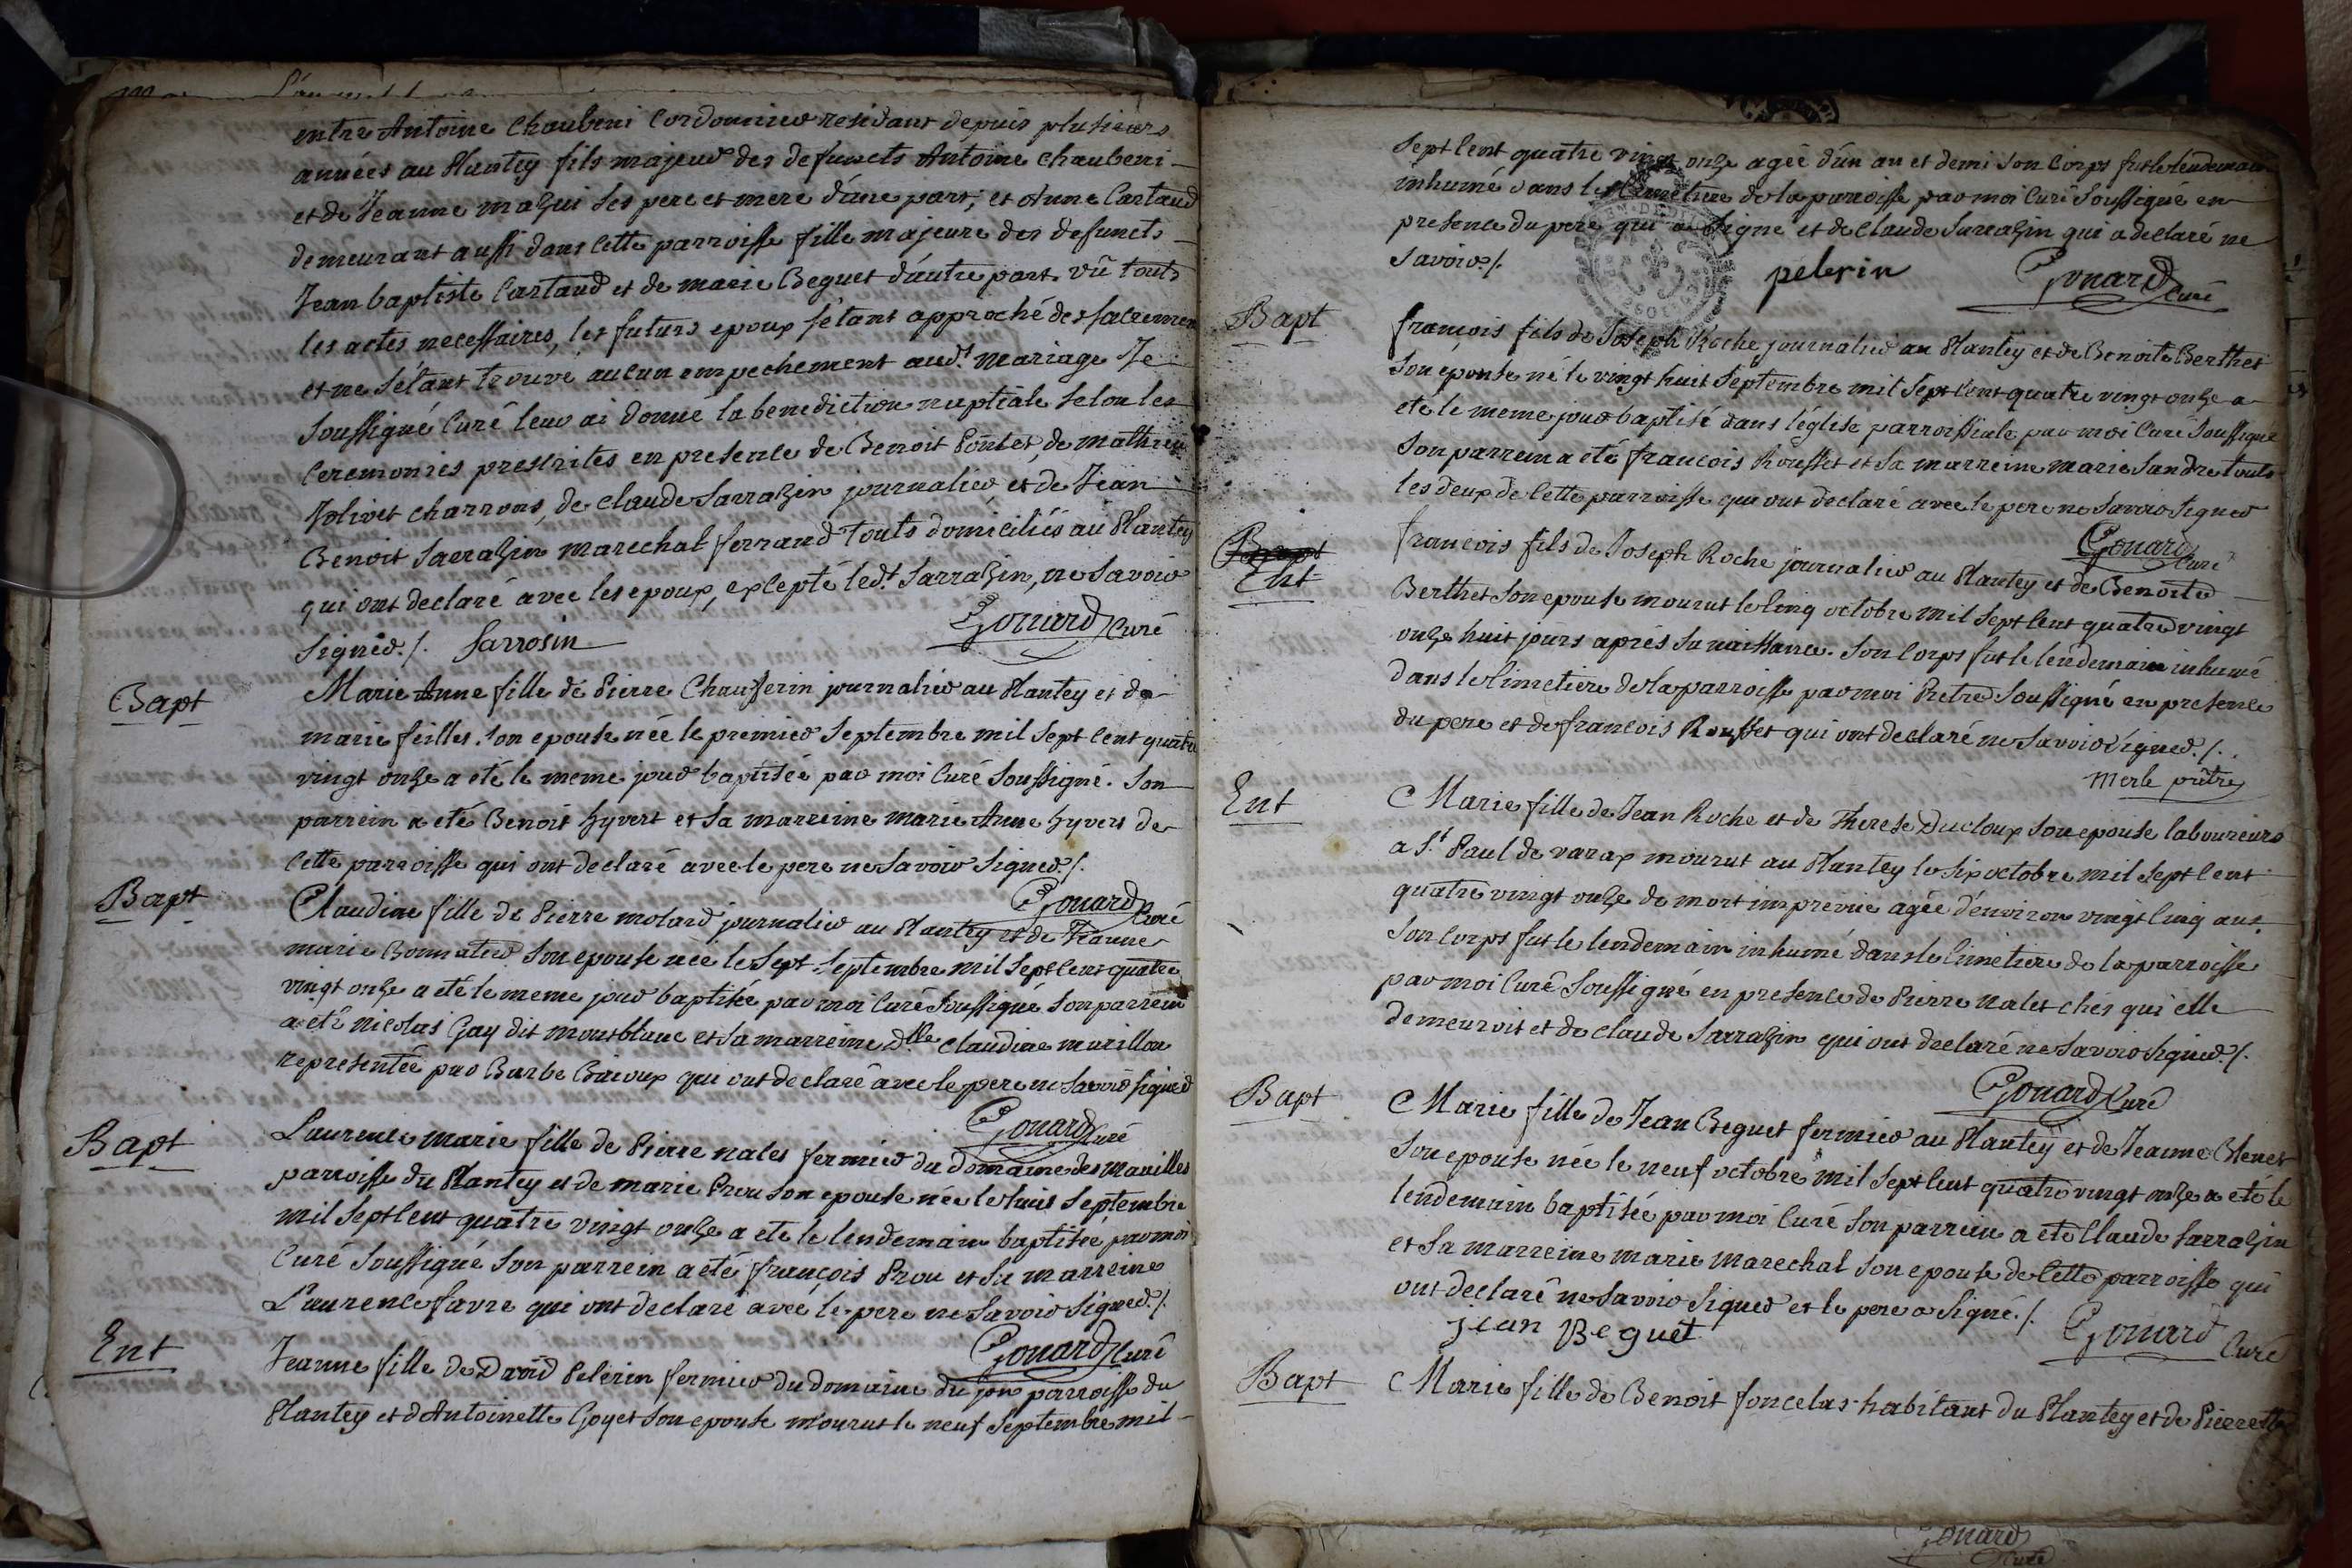 entre Antoine Chauberi Cordonnier residant depuis plusieurs
années au Plantey fils majeur des defuncts Antoine chauberi
et de Jeanne mazui ses pere et mere d'une part, et Anne Cartaud
demeurant aussi dans cette parroisse fille majeure des defuncts
Jean baptiste Cartaud et de marie Beguet d'autre part. vû touts
les actes necessaires, les futurs epoux s'étant approché des sacremen
et ne s'étant trouvé aucun empechement aud.t mariage Je
soussigné Curé leur ai donné la benediction nuptiale selon les
Ceremonies prescrites en presence de Benoit Pontet, de mathieu
Jolivet charrons, de claude Sarrazin journalier, et de Jean
Benoit Sarrazin marechal ferrand touts domiciliés au Plantey
qui ont declaré avec les epoux, excepté led.t Sarrazin, ne savoir
signer./. Sarrosin Gonard Curé
Bapt
Marie Anne fille de Pierre Chausserin journalier au Plantey et de
marie feilles son epouse née le premier Septembre mil sept cent quatre
vingt onze a été le meme jour baptisée par moi Curé soussigné. Son
parrein a été Benoit hyvert et sa marreine marie Anne hyvert de
cette parroisse qui ont declaré avec le pere ne savoir signer./.
Gonard Curé
Bapt
Claudine fille de Pierre molard journalier au Plantey et de Jeanne
marie Bonnatier son epouse née le sept Septembre mil sept cent quatre
vingt onze a été le meme jour baptisée par moi Curé soussigné Son parrein
a été nicolas Gay dit montblanc et sa marreine d.lle Claudine morillon
representée par Barbe qui ont declaré avec le pere ne savoir signer
Gonard Curé
Bapt
Laurence marie fille de Pierre nales fermier du domaine des mauilles
parroisse du Plantey et de marie Prou son epouse née le huit Septembre
mil sept cent quatre vingt onze a été le lendemain baptisée par moi
Curé soussigné Son parrein a été françois Prou et sa marreine
Laurence favre qui ont declaré avec le pere ne savoir signer./.
Gonard Curé
Ent
Jeanne fille de Pelerin fermier du domaine du jon parroisse du
Plantey et d'Antoinette Goyet son epouse mourut le neuf Septembre mil
sept cent quatre vingt onze agée d'un an et demi son Corps fut le lendemain
inhumé dans le Cimetiere de la parroisse par moi Curé soussigné en
presence du pere qui a signé et de claude Sarrazin qui a declaré ne
savoir./.
pelerin Gonard Curé
Bapt
françois fils de Joseph Roche journalier au Plantey et de Benoite Berthet
son épouse né le vingt huit Septembre mil sept cent quatre vingt onze a
eté le meme jour baptisé dans l'église parroissiale par moi Curé soussigné
Son parrein a été francois Rousset et sa marreine marie Sandre touts
les deux de cette parroisse qui ont declaré avec le pere ne savoir signer
Gonard Curé
Bapt
Ent
francois fils de Joseph Roche journalier au Plantey et de Benoite
Berthet son epouse mourut le Cinq octobre mil sept cent quatre vingt
onze huit jours après sa naissance. Son Corps fut le lendemain inhumé
dans le Cimetiere de la parroisse par moi Pretre soussigné en presence
du pere et de francois Rousset qui ont declaré ne savoir signer./.
Merle prêtre
Ent
Marie fille de Jean Roche et de Therese Ducloux son epouse laboureurs
a S.t Paul de varax mourut au Plantey le six octobre mil sept cent
quatre vingt onze de mort imprevue agée d'environ vingt cinq ans.
Son Corps fut le lendemain inhumé dans le Cimetiere de la parroisse
par moi Curé soussigné en presence de Pierre nalet chés qui elle
demeuroit et de claude Sarrazin qui ont declaré ne savoir signer./.
Gonard Curé
Bapt
Marie fille de Jean Beguet fermier au Plantey et de Jeanne Blenet
son epouse née le neuf octobre mil sept cent quatre vingt onze a eté le
lendemain baptisée par moi Curé son parrein a eté Claude Sarrazin
et sa marreine marie marechal son epouse de cette parroisse qui
ont declaré ne savoir signer et le pere a signé./.
jean Beguet Gonard Curé
Bapt
Marie fille de Benoit foncelas habitant du Plantey et de Pierrette
Gonard
Curé